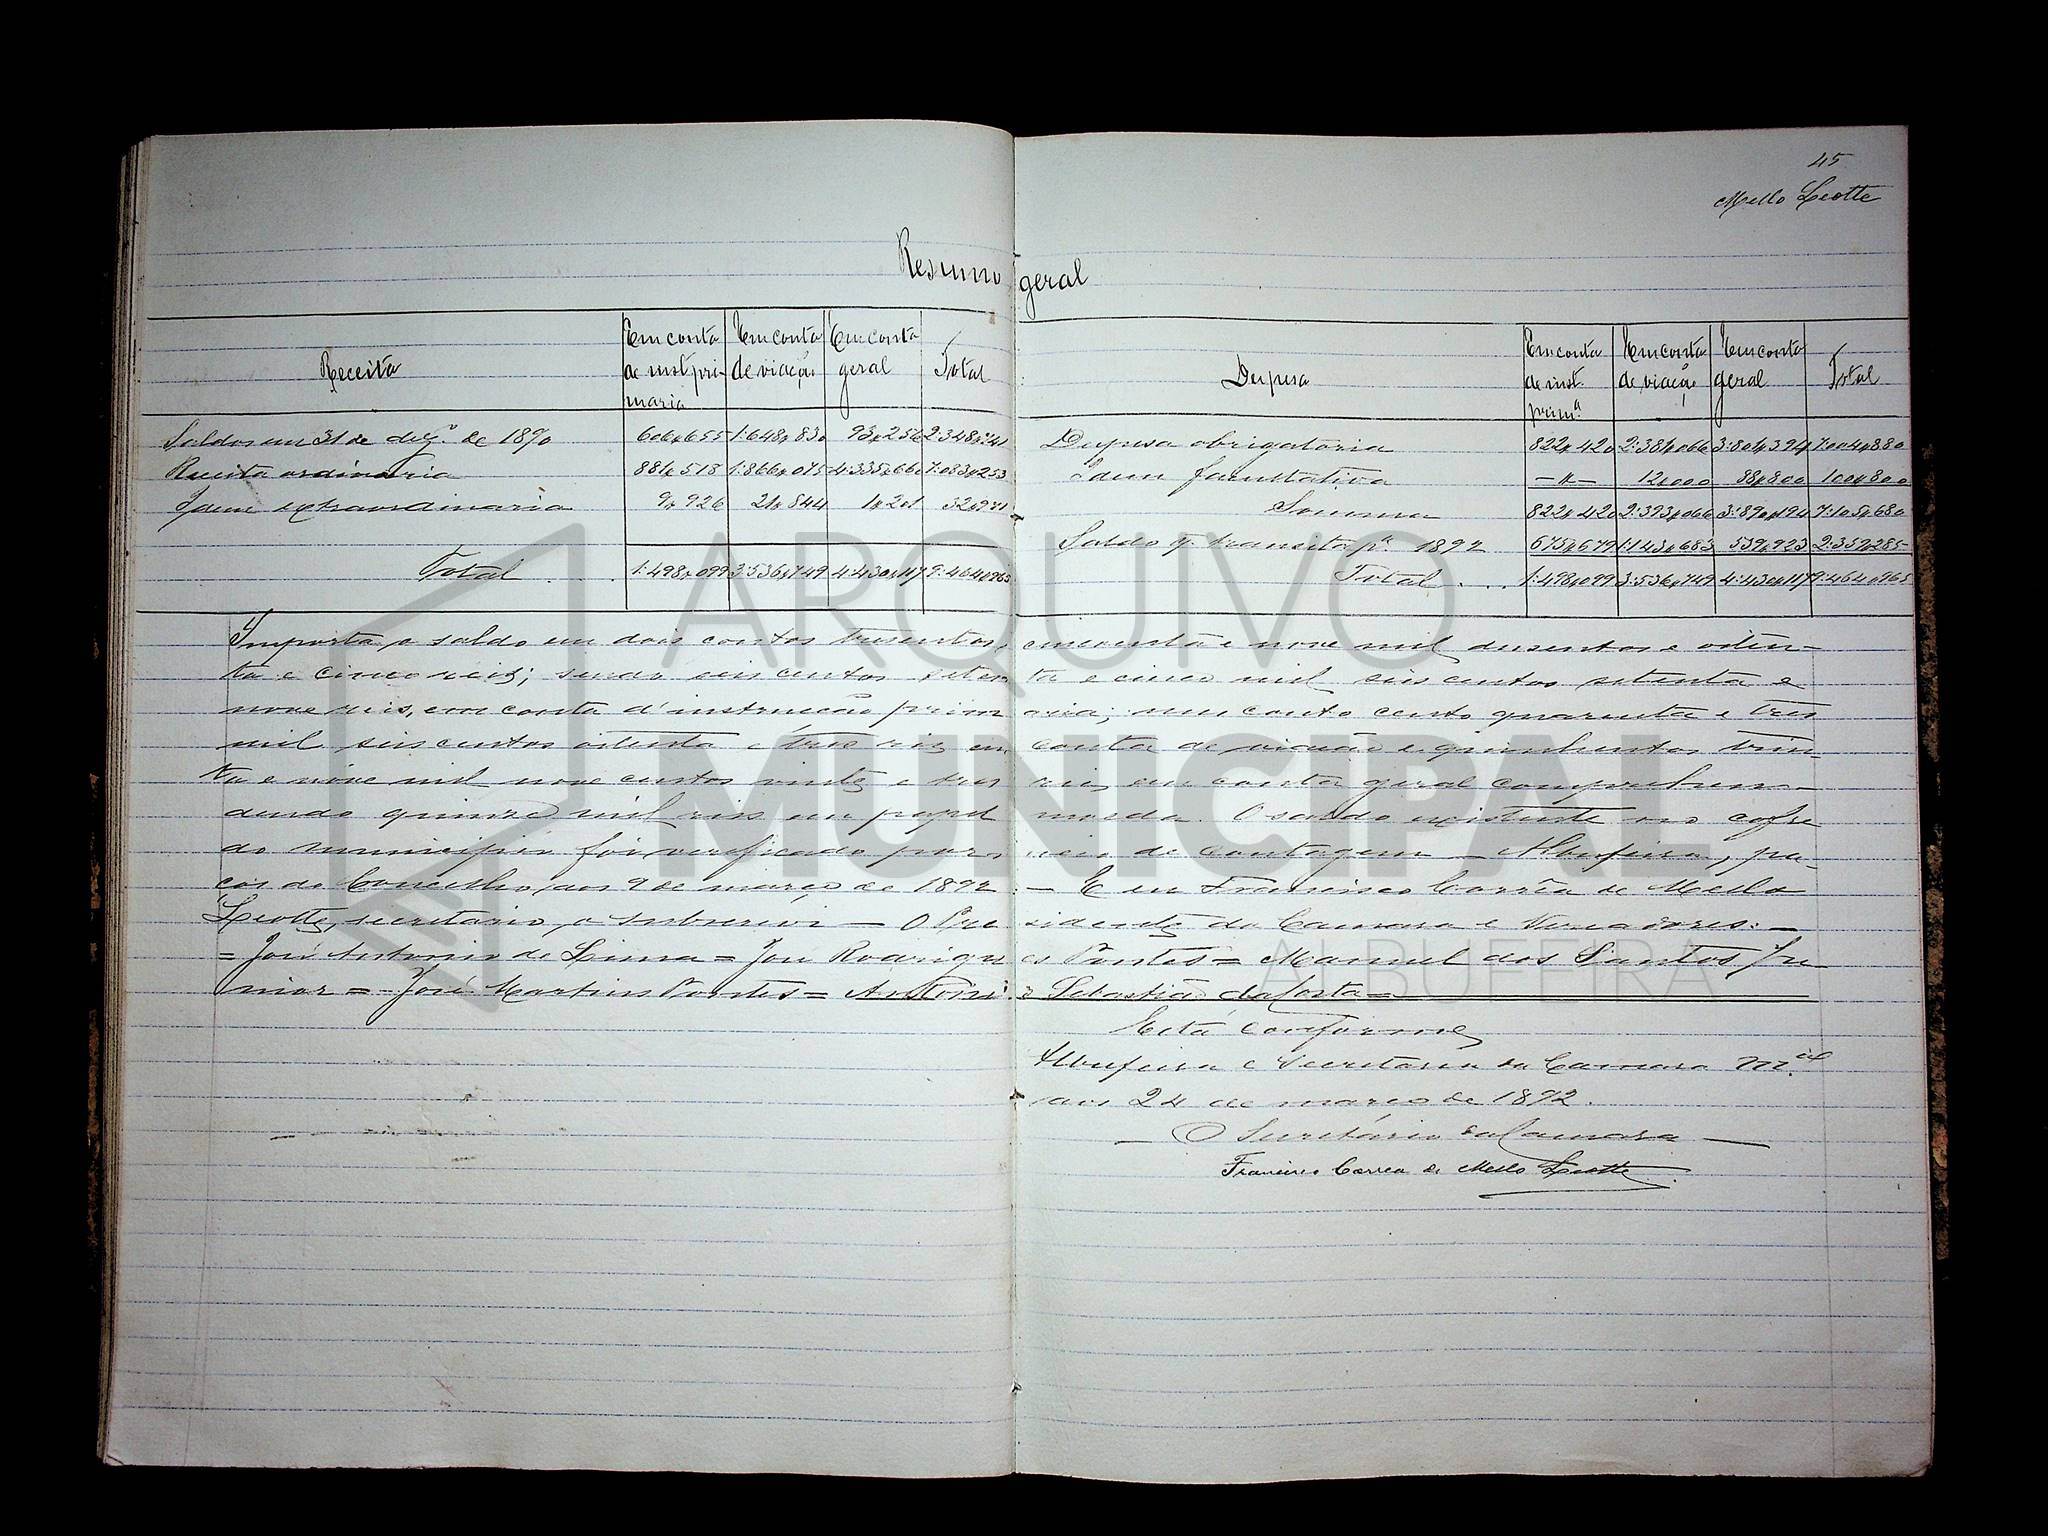 45
Mello Leotte
Resumo geral
Receita | Em conta de inst. primaria | Em conta de viação | Em conta geral | Total
Saldos em 31 de dezº. de 1890 | 606$655 | 1:648$830 | 93$256 | 2:348$741
Receita ordinaria | 881$518 | 1:866$075 | 4:335$660 | 7:083$253
Idem extraordinaria | 9$926 | 21$844 | 1$201 | 32$971
Total . . . | 1:498$099 | 3:536$749 | 4:430$117 | 9:464$965
Despesa | Em conta de inst. primª | Em conta de viação | Em conta geral | Total
Despesa obrigatoria | 822$420 | 2:381$066 | 3:801$394 | 7:004$880
Idem facultativa | —"— | 12$000 | 88$800 | 100$800
Somma | 822$420 | 2:393$066 | 3:890$194 | 7:105$680
Saldo q. transita pª. 1892 | 675$679 | 1:143$683 | 539$923 | 2:359$285
Total . . . | 1:498$099 | 3:536$749 | 4:430$117 | 9:464$965
Importa o saldo em dois contos tresentos, cincoenta e nove mil dusentos e oiten-
ta e cinco reis; sendo seis centos setenta e cinco mil seis centos setenta e
nove reis, em conta d'instrucção primaria; um conto cento quarenta e tres
mil seis centos oitenta e tres reis em conta de viação e quinhentos trin-
ta e nove mil nove centos vinte e tres reis em conta geral comprehen-
dendo quinze mil reis em papel moeda. O saldo existente no cofre
do municipio foi verificado por meio de contagem — Albufeira, pa-
ços do Concelho, aos 9 de março de 1892 — E eu Francisco Corrêa de Mello
Leotte, secretario, o subscrevi — O Presidente da Camara e Vereadores: —
= José Antonio de Lima = José Rodrigues Pontes = Manuel dos Santos Ju-
nior = José Martins Pontes = Antonio Sebastião da Costa =
Está conforme
Albufeira e Secretaria da Camara M.cil
aos 24 de março de 1892.
— O Secretário da Camara —
Francisco Correa de Mello Leotte
ARQUIVO
MUNICIPAL
ALBUFEIRA